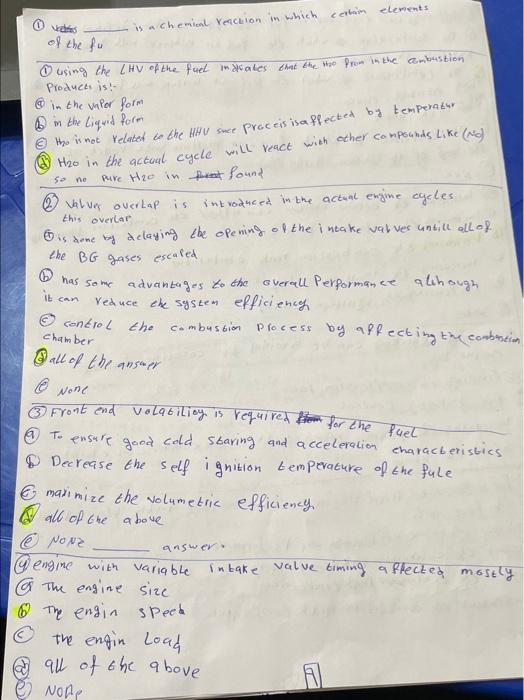 ① ______ is a chemical reaction in which certain elements
of the fu
① using the LHV of the fuel indicates that the H2o from in the combustion
Products is:-
ⓐ in the vafor form
ⓑ in the Liquid form
ⓒ H2o is not related to the HHV since process is affected by temperatur
ⓓ H2o in the actual cycle will react with other compounds Like (No)
so no Pure H2o in found
② Valves overLap is introduced in the actual engine cycles
this overlap
ⓐ is done by delaying the opening of the intake valves untill all of
the BG gases escaped
ⓑ has some advantages to the overall Performance although
it can reduce the system efficiency
ⓒ control the combustion process by affecting the combustion
chamber
ⓓ all of the answer
ⓔ None
③ Front end volatility is required for the fuel
ⓐ To ensure good cold staring and acceleration characteristics
ⓑ Decrease the self ignition temperature of the fule
ⓒ maximize the volumetric efficiency
ⓓ all of the above
ⓔ NONE ______ answer.
④ engine with variable intake valve timing affected mostly
ⓐ The engine size
ⓑ The engin speed
ⓒ the engin Load
ⓓ all of the above
ⓔ None